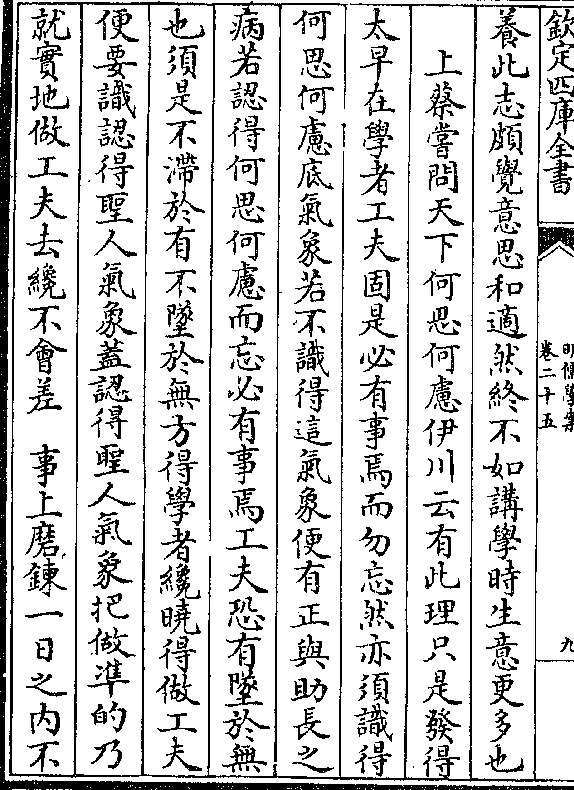 欽定四庫全書
明儒學案
卷二十五
九
養此志頗覺意思和適然終不如講學時生意更多也
上蔡嘗問天下何思何慮伊川云有此理只是發得
太早在學者工夫固是必有事焉而勿忘然亦須識得
何思何慮底氣象若不識得這氣象便有正與助長之
病若認得何思何慮而忘必有事焉工夫恐有墜於無
也須是不滯於有不墜於無方得學者纔曉得做工夫
便要識認得聖人氣象蓋認得聖人氣象把做準的乃
就實地做工夫去纔不會差　事上磨鍊一日之内不